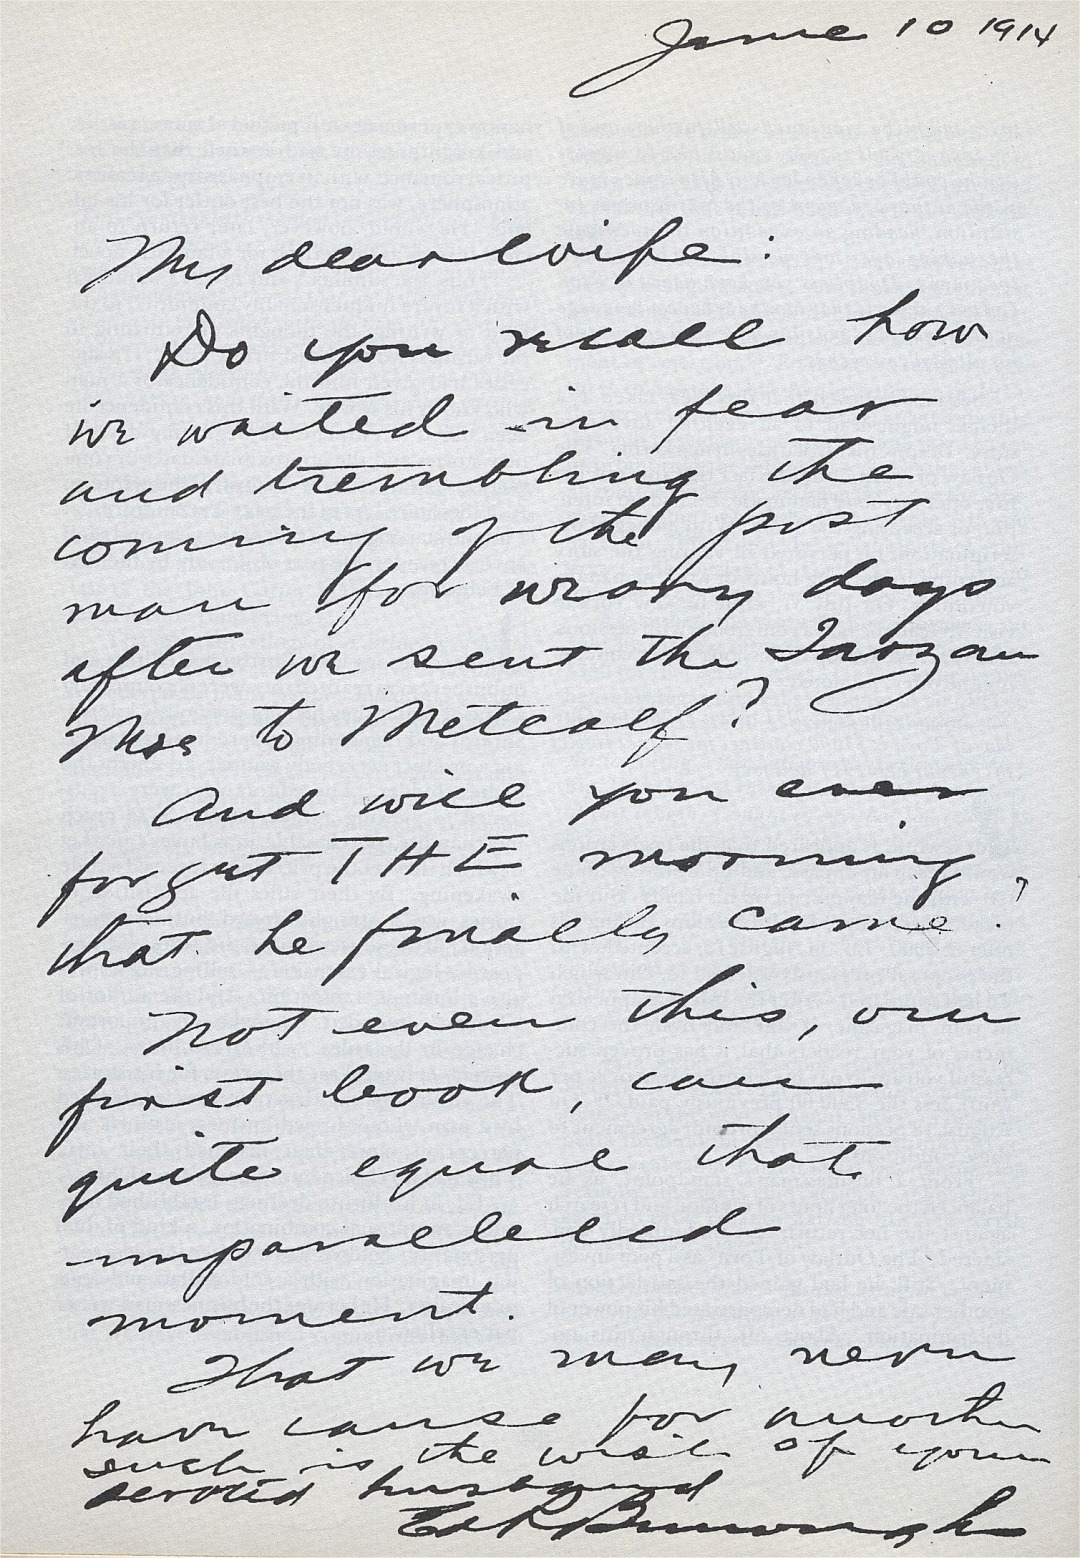 June 10 1914
My dear wife:
Do you recall how
we waited in fear
and trembling the
coming of the post
man for many days
after we sent the Tarzan
Mss to Metcalf?
And will you ever
forget THE morning
that he finally came?
Not even this, our
first book, can
quite equal that
unparalleled
moment.
That we may never
have cause for another
such is the wish of your
devoted husband
Ed R Burroughs